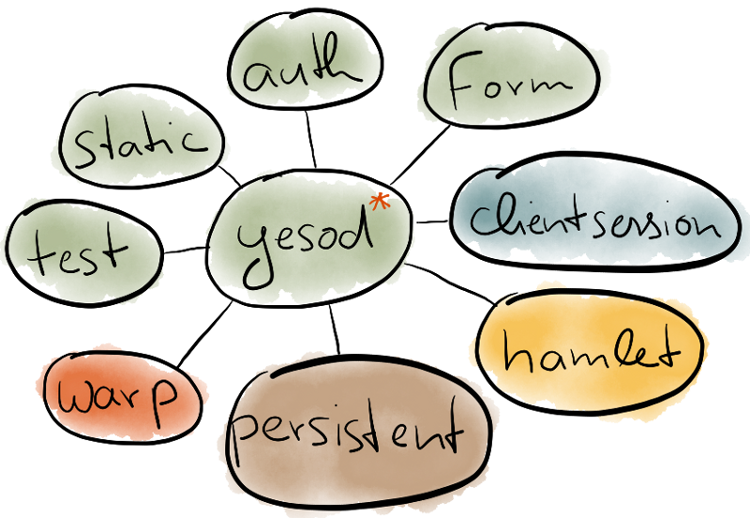 auth
Form
static
clientsession
yesod*
test
hamlet
warp
persistent